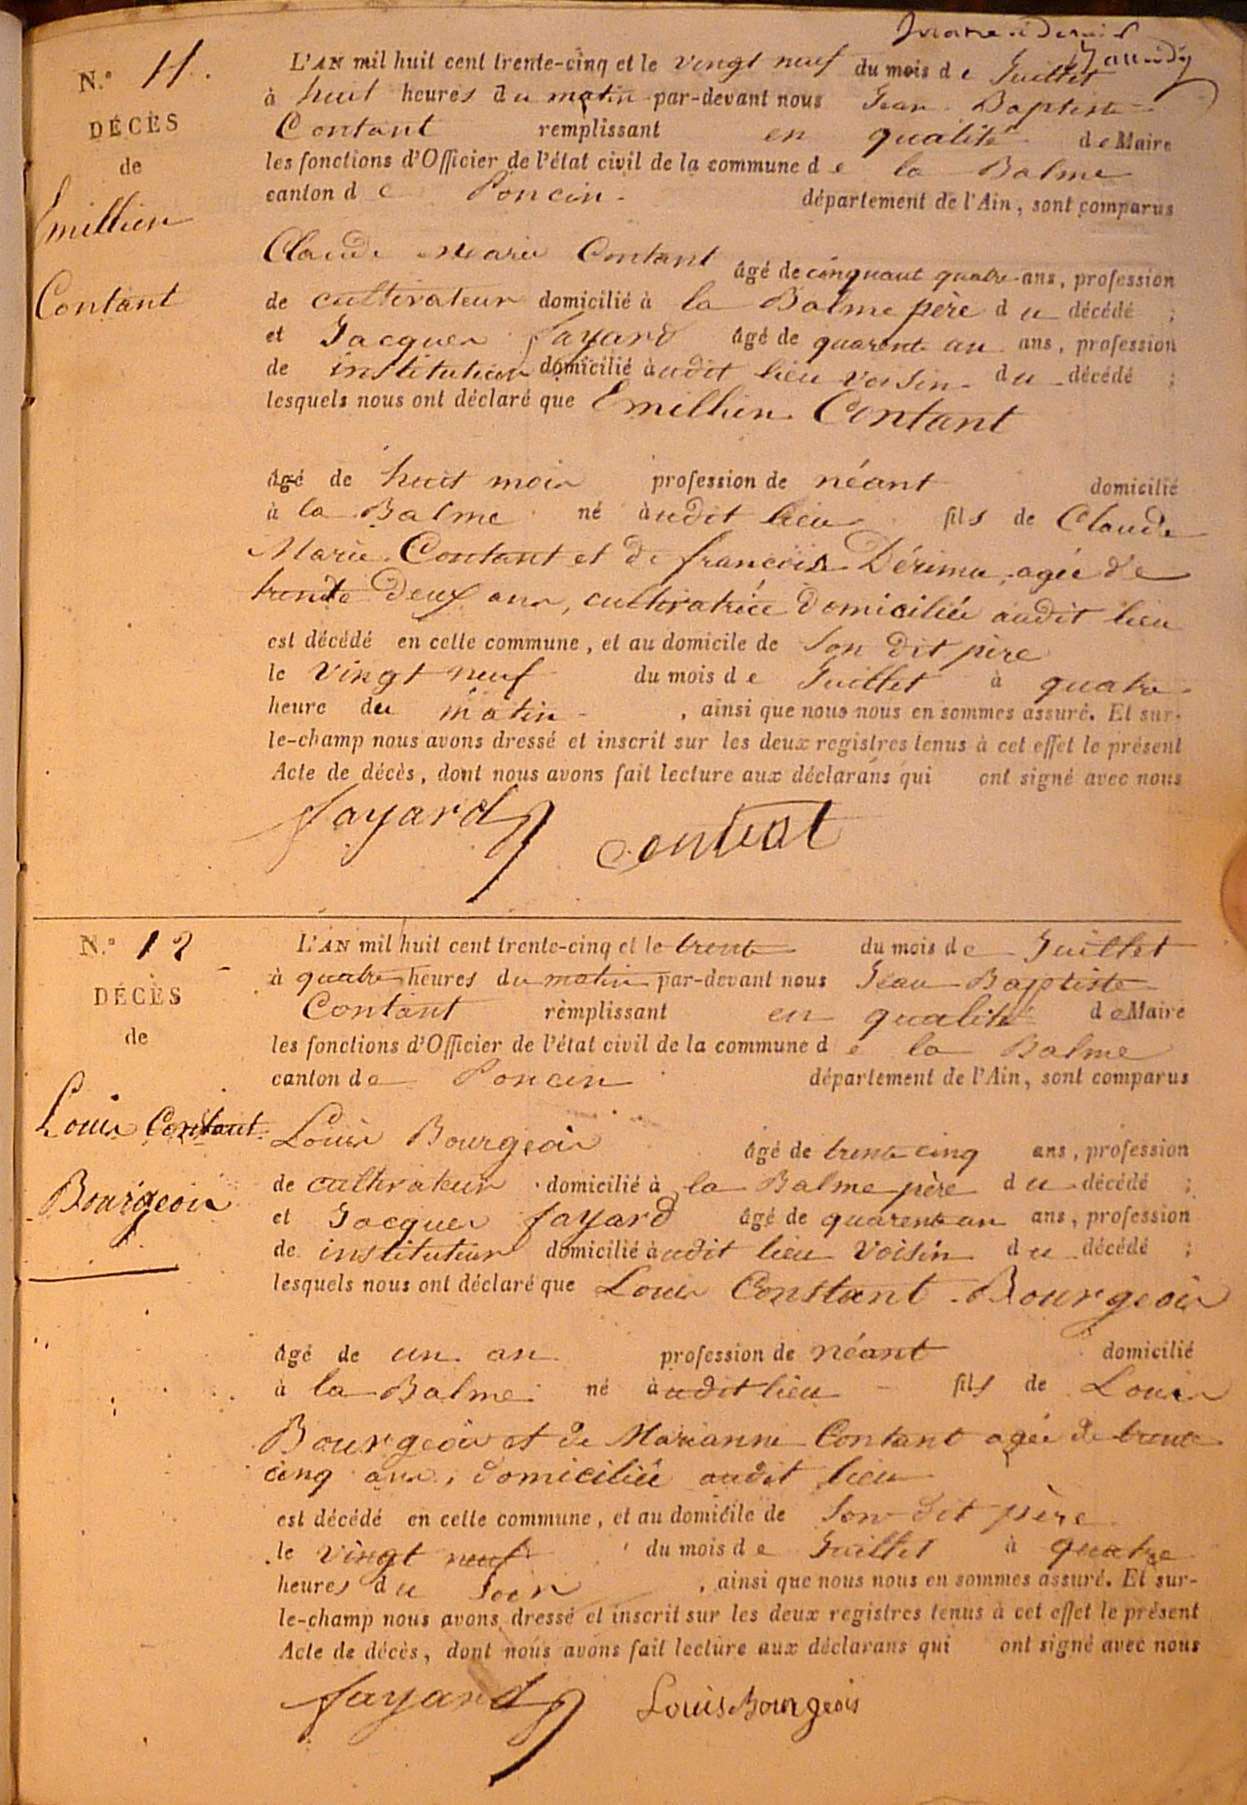 N.° 11.
DÉCÈS
de
Emillien
Contant
L'AN mil huit cent trente-cinq et le vingt neuf du mois de Juillet
à huit heures du matin par-devant nous Jean Baptiste
Contant remplissant en qualité de Maire
les fonctions d'Officier de l'état civil de la commune de la Balme
canton de Poncin département de l'Ain, sont comparus
Claude Marie Contant âgé de cinquant quatre ans, profession
de cultivateur domicilié à la Balme père du décédé ;
et Jacques fayard âgé de quarente un ans, profession
de instituteur domicilié audit lieu voisin du décédé ;
lesquels nous ont déclaré que Emillien Contant
âgé de huit mois profession de néant domicilié
à la Balme né audit lieu fils de Claude
Marie Contant et de françoise agée de
trente deux ans, cultivatrice domiciliée audit lieu
est décédé en cette commune, et au domicile de son dit père
le vingt neuf du mois de Juillet à quatre
heure du matin , ainsi que nous nous en sommes assuré. Et sur-
le-champ nous avons dressé et inscrit sur les deux registres tenus à cet effet le présent
Acte de décès, dont nous avons fait lecture aux déclarans qui ont signé avec nous
fayard Contant
N.° 12
DÉCÈS
de
Louis Constant
Bourgeois
L'AN mil huit cent trente-cinq et le trente du mois de Juillet
à quatre heures du matin par-devant nous Jean Baptiste
Contant remplissant en qualité de Maire
les fonctions d'Officier de l'état civil de la commune de la Balme
canton de Poncin département de l'Ain, sont comparus
Louis Bourgeois âgé de trente cinq ans, profession
de cultivateur domicilié à la Balme père du décédé ;
et Jacques fayard âgé de quarente un ans, profession
de instituteur domicilié audit lieu voisin du décédé ;
lesquels nous ont déclaré que Louis Constant Bourgeois
âgé de un an profession de néant domicilié
à la Balme né audit lieu fils de Louis
Bourgeois et de Marianne Contant agée de trente
cinq ans, domiciliée audit lieu
est décédé en cette commune, et au domicile de son dit père
le vingt neuf du mois de Juillet à quatre
heures du soir , ainsi que nous nous en sommes assuré. Et sur-
le-champ nous avons dressé et inscrit sur les deux registres tenus à cet effet le présent
Acte de décès, dont nous avons fait lecture aux déclarans qui ont signé avec nous
fayard Louis Bourgeois